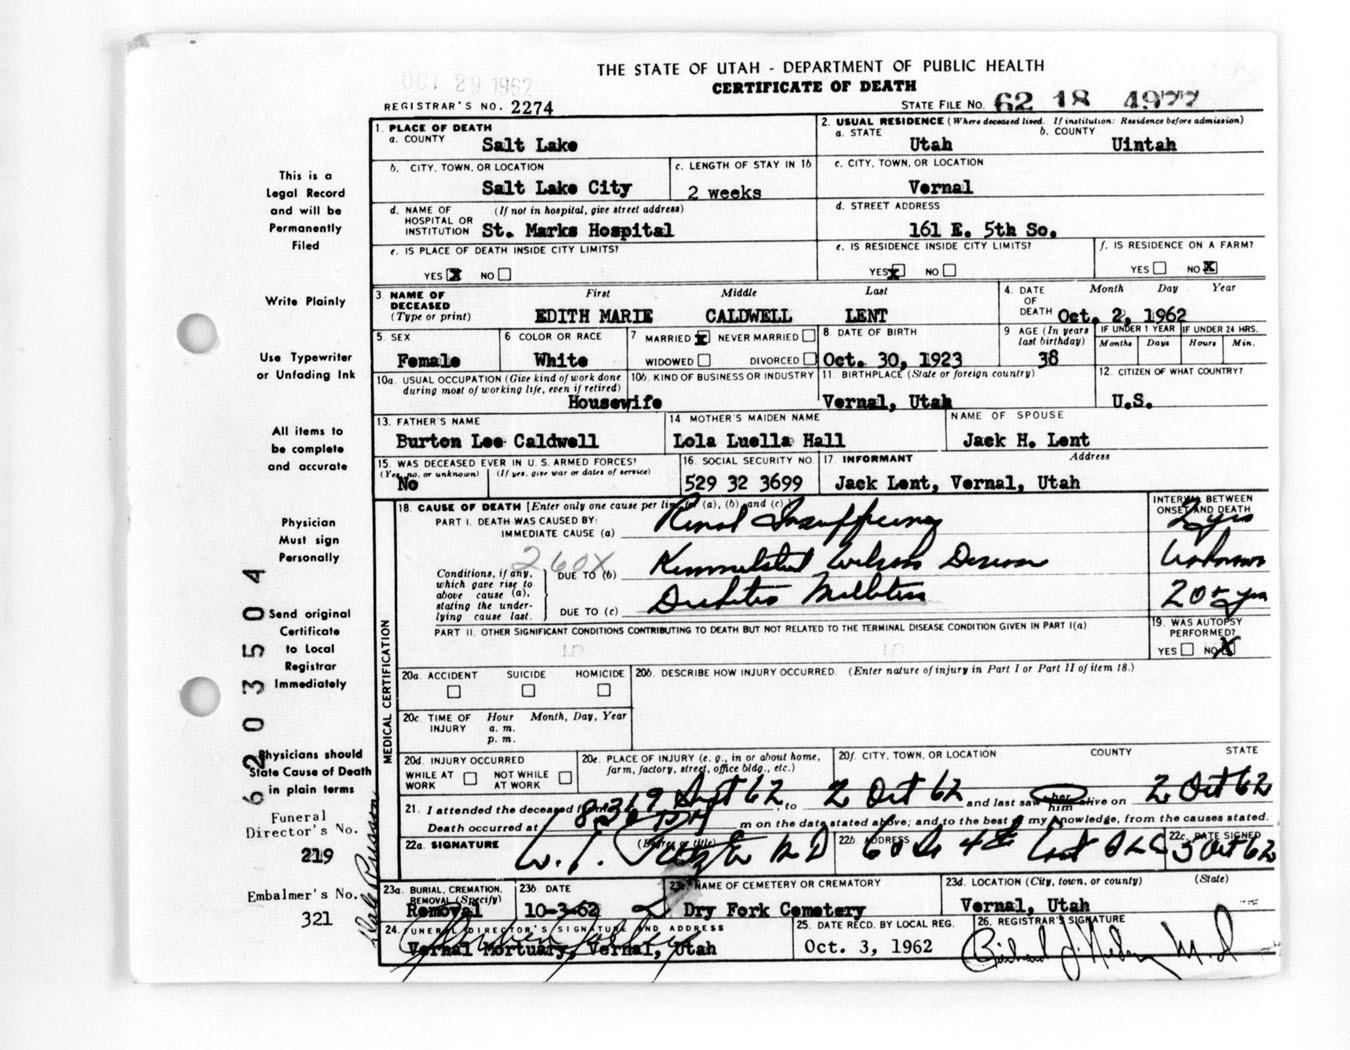 THE STATE OF UTAH - DEPARTMENT OF PUBLIC HEALTH
OCT 29 1962
CERTIFICATE OF DEATH
REGISTRAR'S NO. 2274
STATE FILE NO. 62 18 4977
1. PLACE OF DEATH
a. COUNTY Salt Lake
2. USUAL RESIDENCE (Where deceased lived. If institution: Residence before admission)
a. STATE Utah b. COUNTY Uintah
b. CITY, TOWN, OR LOCATION Salt Lake City
c. LENGTH OF STAY IN 1b 2 weeks
c. CITY, TOWN, OR LOCATION Vernal
d. NAME OF HOSPITAL OR INSTITUTION (If not in hospital, give street address) St. Marks Hospital
d. STREET ADDRESS 161 E. 5th So.
e. IS PLACE OF DEATH INSIDE CITY LIMITS? YES X NO
e. IS RESIDENCE INSIDE CITY LIMITS? YES X NO
f. IS RESIDENCE ON A FARM? YES NO X
3. NAME OF DECEASED (Type or print)
First Middle Last
EDITH MARIE CALDWELL LENT
4. DATE OF DEATH Month Day Year
Oct. 2, 1962
5. SEX Female
6 COLOR OR RACE White
7 MARRIED X NEVER MARRIED
WIDOWED DIVORCED
8 DATE OF BIRTH Oct. 30, 1923
9 AGE (In years last birthday) 38
IF UNDER 1 YEAR Months Days
IF UNDER 24 HRS. Hours Min.
10a. USUAL OCCUPATION (Give kind of work done during most of working life, even if retired) Housewife
10b. KIND OF BUSINESS OR INDUSTRY
11. BIRTHPLACE (State or foreign country) Vernal, Utah
12. CITIZEN OF WHAT COUNTRY? U.S.
13. FATHER'S NAME Burton Lee Caldwell
14 MOTHER'S MAIDEN NAME Lola Luella Hall
NAME OF SPOUSE Jack H. Lent
15. WAS DECEASED EVER IN U. S. ARMED FORCES?
(Yes, no, or unknown) (If yes, give war or dates of service)
No
16. SOCIAL SECURITY NO. 529 32 3699
17. INFORMANT Address
Jack Lent, Vernal, Utah
18. CAUSE OF DEATH [Enter only one cause per line for (a), (b), and (c)]
INTERVAL BETWEEN ONSET AND DEATH
PART I. DEATH WAS CAUSED BY:
IMMEDIATE CAUSE (a) Renal Insufficiency 2 yrs
260X
Conditions, if any, which gave rise to above cause (a), stating the underlying cause last.
DUE TO (b) Kimmelstiel Wilson Disease Unknown
DUE TO (c) Diabetes Mellitus 20+ yrs
PART II. OTHER SIGNIFICANT CONDITIONS CONTRIBUTING TO DEATH BUT NOT RELATED TO THE TERMINAL DISEASE CONDITION GIVEN IN PART I(a)
19. WAS AUTOPSY PERFORMED?
YES NO X
MEDICAL CERTIFICATION
20a. ACCIDENT SUICIDE HOMICIDE
20b. DESCRIBE HOW INJURY OCCURRED. (Enter nature of injury in Part I or Part II of item 18.)
20c. TIME OF INJURY Hour Month, Day, Year
a. m.
p. m.
20d. INJURY OCCURRED
WHILE AT WORK NOT WHILE AT WORK
20e. PLACE OF INJURY (e. g., in or about home, farm, factory, street, office bldg., etc.)
20f. CITY, TOWN, OR LOCATION COUNTY STATE
21. I attended the deceased from 19 Sept 62, to 2 Oct 62 and last saw her him alive on 2 Oct 62
Death occurred at 8:30 m on the date stated above; and to the best of my knowledge, from the causes stated.
22a. SIGNATURE (Degree or title) M D
22b ADDRESS
22c. DATE SIGNED 5 Oct 62
23a. BURIAL, CREMATION, REMOVAL (Specify) Removal
23b. DATE 10-3-62
23c. NAME OF CEMETERY OR CREMATORY Dry Fork Cemetery
23d. LOCATION (City, town, or county) (State)
Vernal, Utah
24. FUNERAL DIRECTOR'S SIGNATURE AND ADDRESS
Vernal Mortuary, Vernal, Utah
25. DATE RECD. BY LOCAL REG. Oct. 3, 1962
26. REGISTRAR'S SIGNATURE
This is a
Legal Record
and will be
Permanently
Filed
Write Plainly
Use Typewriter
or Unfading Ink
All items to
be complete
and accurate
Physician
Must sign
Personally
Send original
Certificate
to Local
Registrar
Immediately
Physicians should
State Cause of Death
in plain terms
Funeral
Director's No.
219
Embalmer's No.
321
62 03504